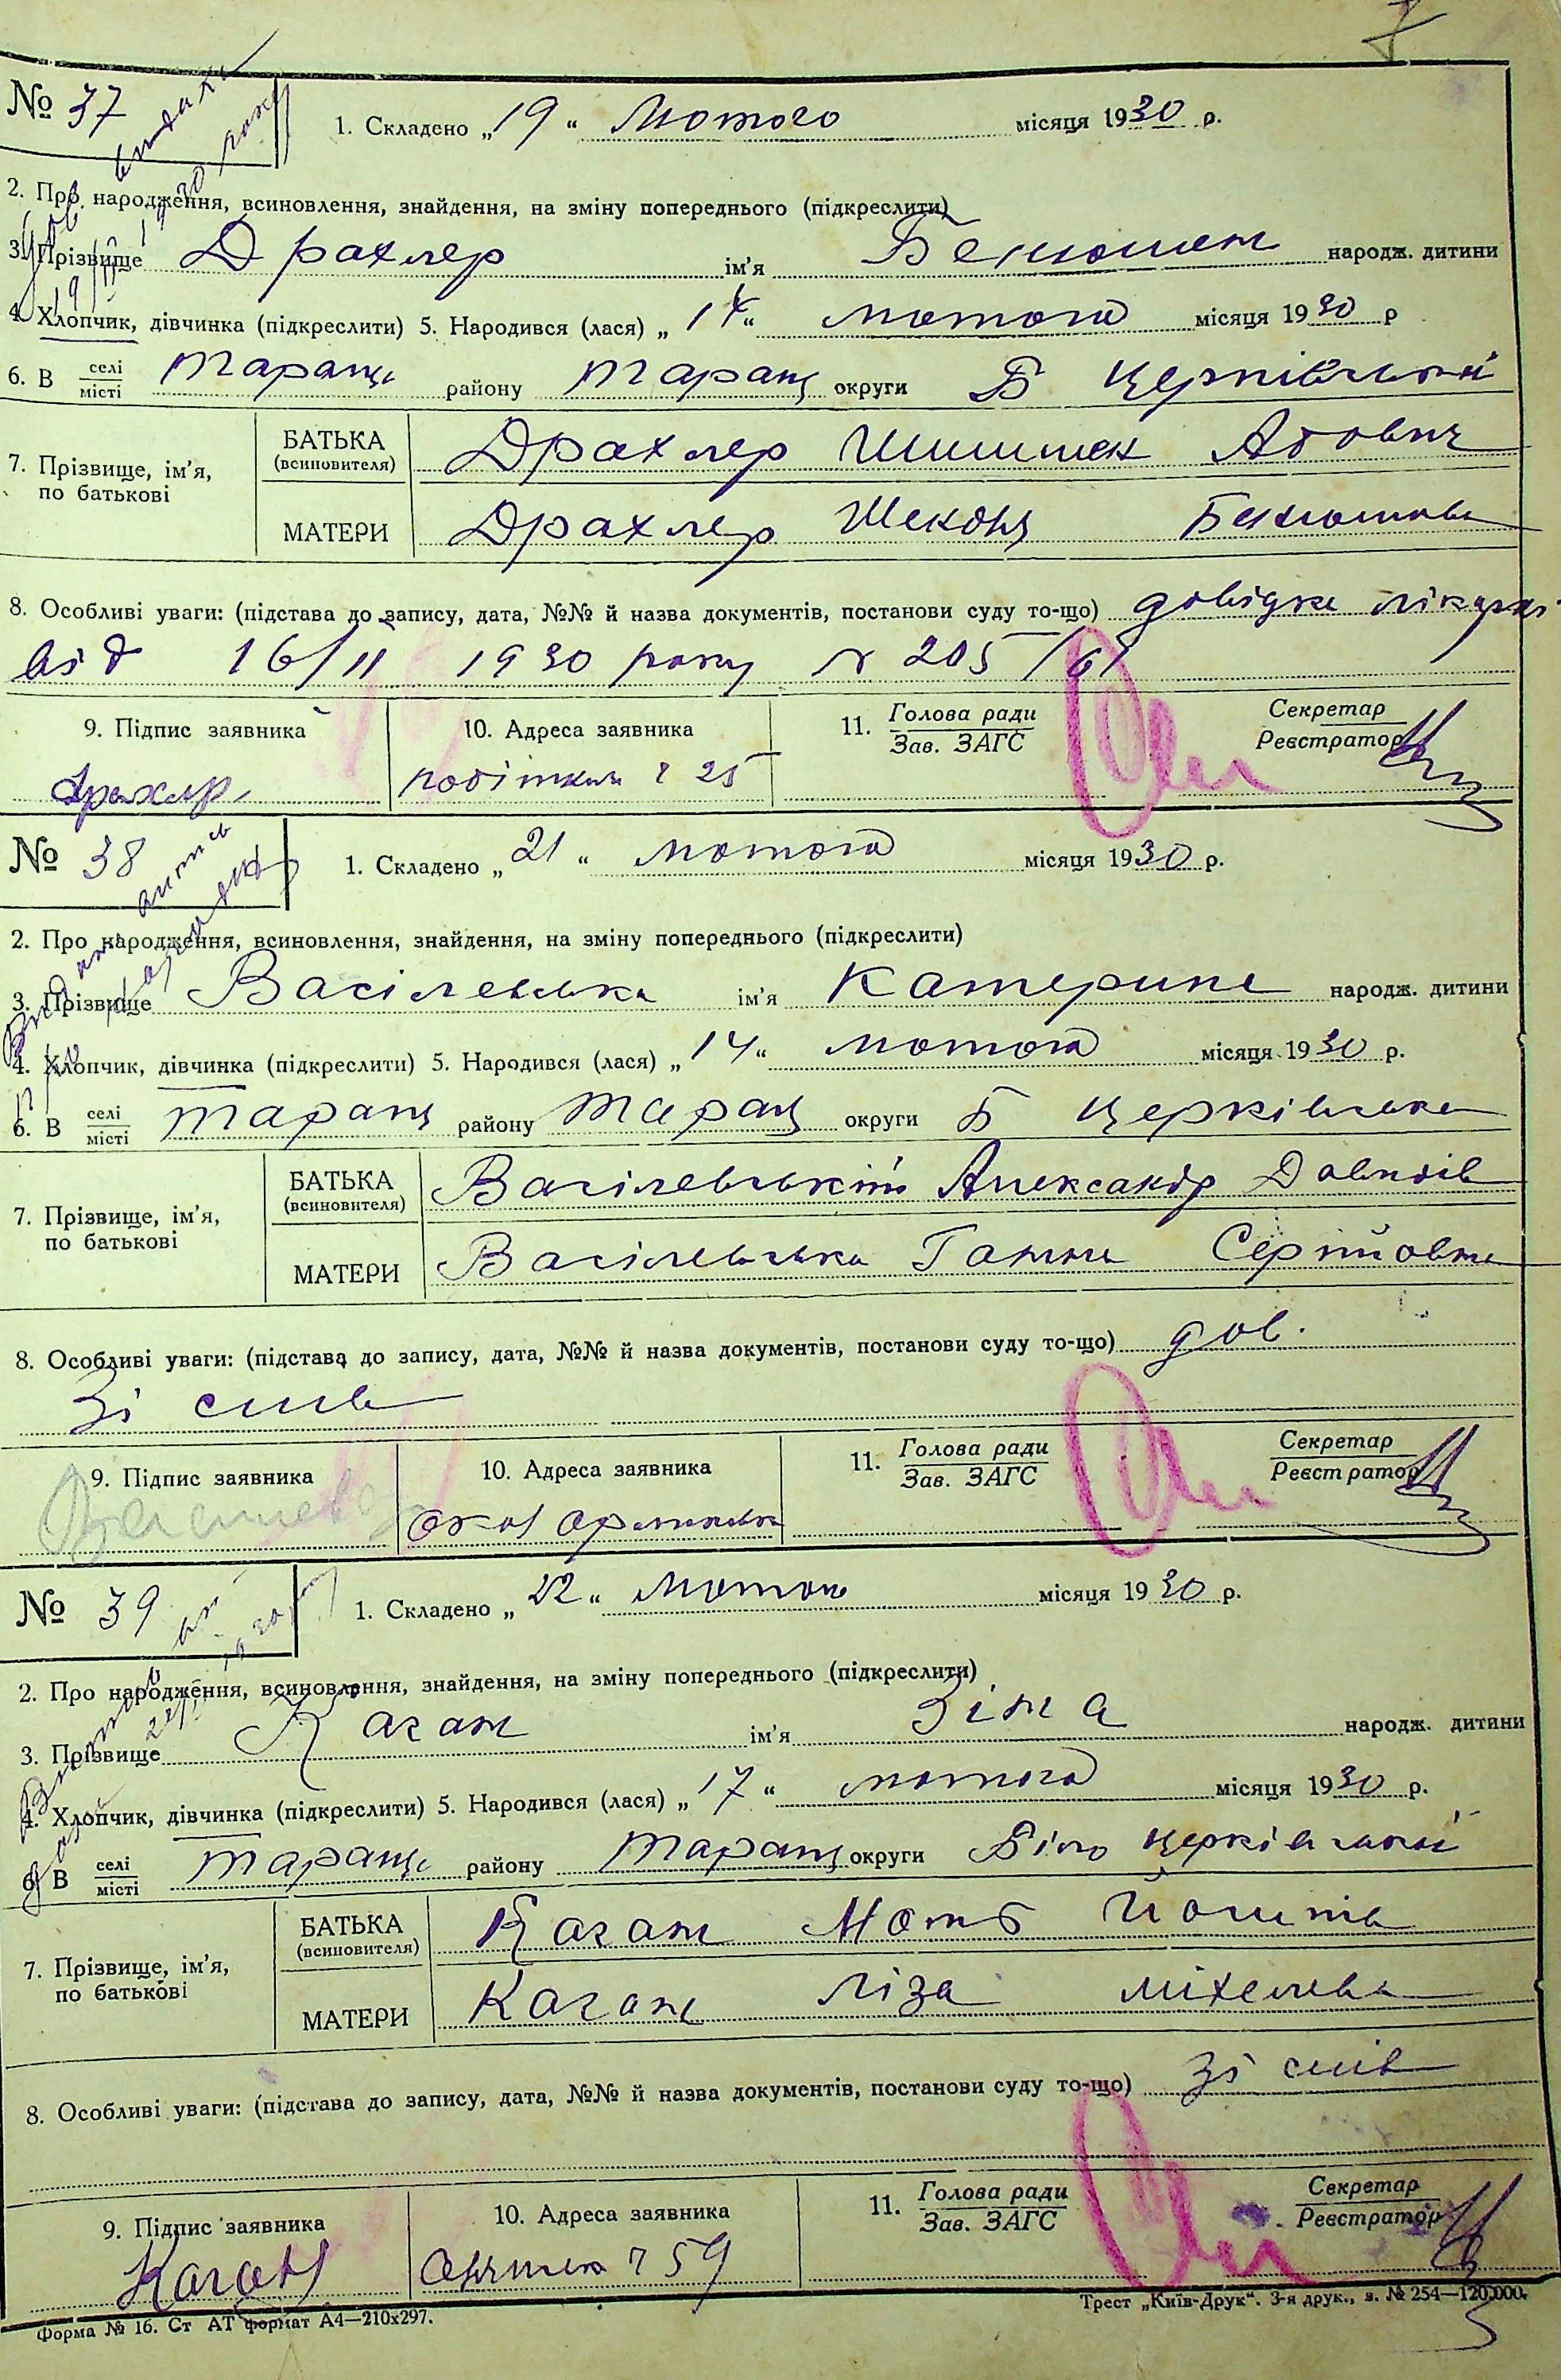 7
№ 37
1. Складено „19“ Лютого місяця 1930 р.
2. Про народження, всиновлення, знайдення, на зміну попереднього (підкреслити)
3. Прізвище Драхлер ім'я народж. дитини
4. Хлопчик, дівчинка (підкреслити) 5. Народився (лася) „14“ лютого місяця 1930 р
6. В селі місті Тараща району Таращ округи Б церківської
7. Прізвище, ім'я, по батькові
БАТЬКА (всиновителя) Драхлер Абович
МАТЕРИ Драхлер
8. Особливі уваги: (підстава до запису, дата, №№ й назва документів, постанови суду то-що) довідка лікарні
від 16/II 1930 року № 205/61
9. Підпис заявника
10. Адреса заявника
11. Голова ради
Зав. ЗАГС
Секретар
Реєстратор
Драхлер
25
№ 38
1. Складено „21“ лютого місяця 1930 р.
2. Про народження, всиновлення, знайдення, на зміну попереднього (підкреслити)
3. Прізвище Васілевська ім'я Катерина народж. дитини
4. Хлопчик, дівчинка (підкреслити) 5. Народився (лася) „14“ лютого місяця 1930 р.
6. В селі місті Таращ району Таращ округи Б церківська
7. Прізвище, ім'я, по батькові
БАТЬКА (всиновителя) Васілевський Александр Давидів
МАТЕРИ Васілевська Ганна Сергійовна
8. Особливі уваги: (підстава до запису, дата, №№ й назва документів, постанови суду то-що) дов.
Зі слів
9. Підпис заявника
10. Адреса заявника
11. Голова ради
Зав. ЗАГС
Секретар
Реєстратор
№ 39
1. Складено „22“ Лютого місяця 1930 р.
2. Про народження, всиновлення, знайдення, на зміну попереднього (підкреслити)
3. Прізвище Каган ім'я Зіна народж. дитини
4. Хлопчик, дівчинка (підкреслити) 5. Народився (лася) „17“ лютого місяця 1930 р.
6. В селі місті Тараща району Таращ округи Біло церківської
7. Прізвище, ім'я, по батькові
БАТЬКА (всиновителя) Каган
МАТЕРИ Каган Ліза Міхелевна
8. Особливі уваги: (підстава до запису, дата, №№ й назва документів, постанови суду то-що) зі слів
9. Підпис заявника
10. Адреса заявника
11. Голова ради
Зав. ЗАГС
Секретар
Реєстратор
Каган
59
Форма № 16. Ст АТ формат А4—210х297.
Трест „Київ-Друк“. 3-я друк., з. № 254—120.000.